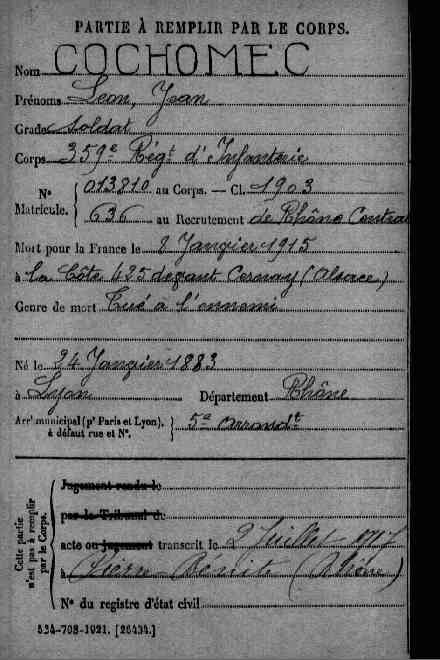 PARTIE À REMPLIR PAR LE CORPS.
Nom COCHOMEC
Prénoms Léon, Jean
Grade soldat
Corps 359e Régt d'Infanterie
N° Matricule. 013810 au Corps. — Cl. 1903
636 au Recrutement de Rhône Central
Mort pour la France le 2 Janvier 1915
à la Côte 425 devant Cernay (Alsace)
Genre de mort Tué à l'ennemi
Né le 24 Janvier 1883
à Lyon Département Rhône
Arrt municipal (pr Paris et Lyon), à défaut rue et N°. 5e arrondt
Cette partie n'est pas à remplir par le Corps.
Jugement rendu le
par le Tribunal de
acte ou jugement transcrit le 2 Juillet 1917
à Pierre-Bénite (Rhône)
N° du registre d'état civil
534-708-1921. [26434.]